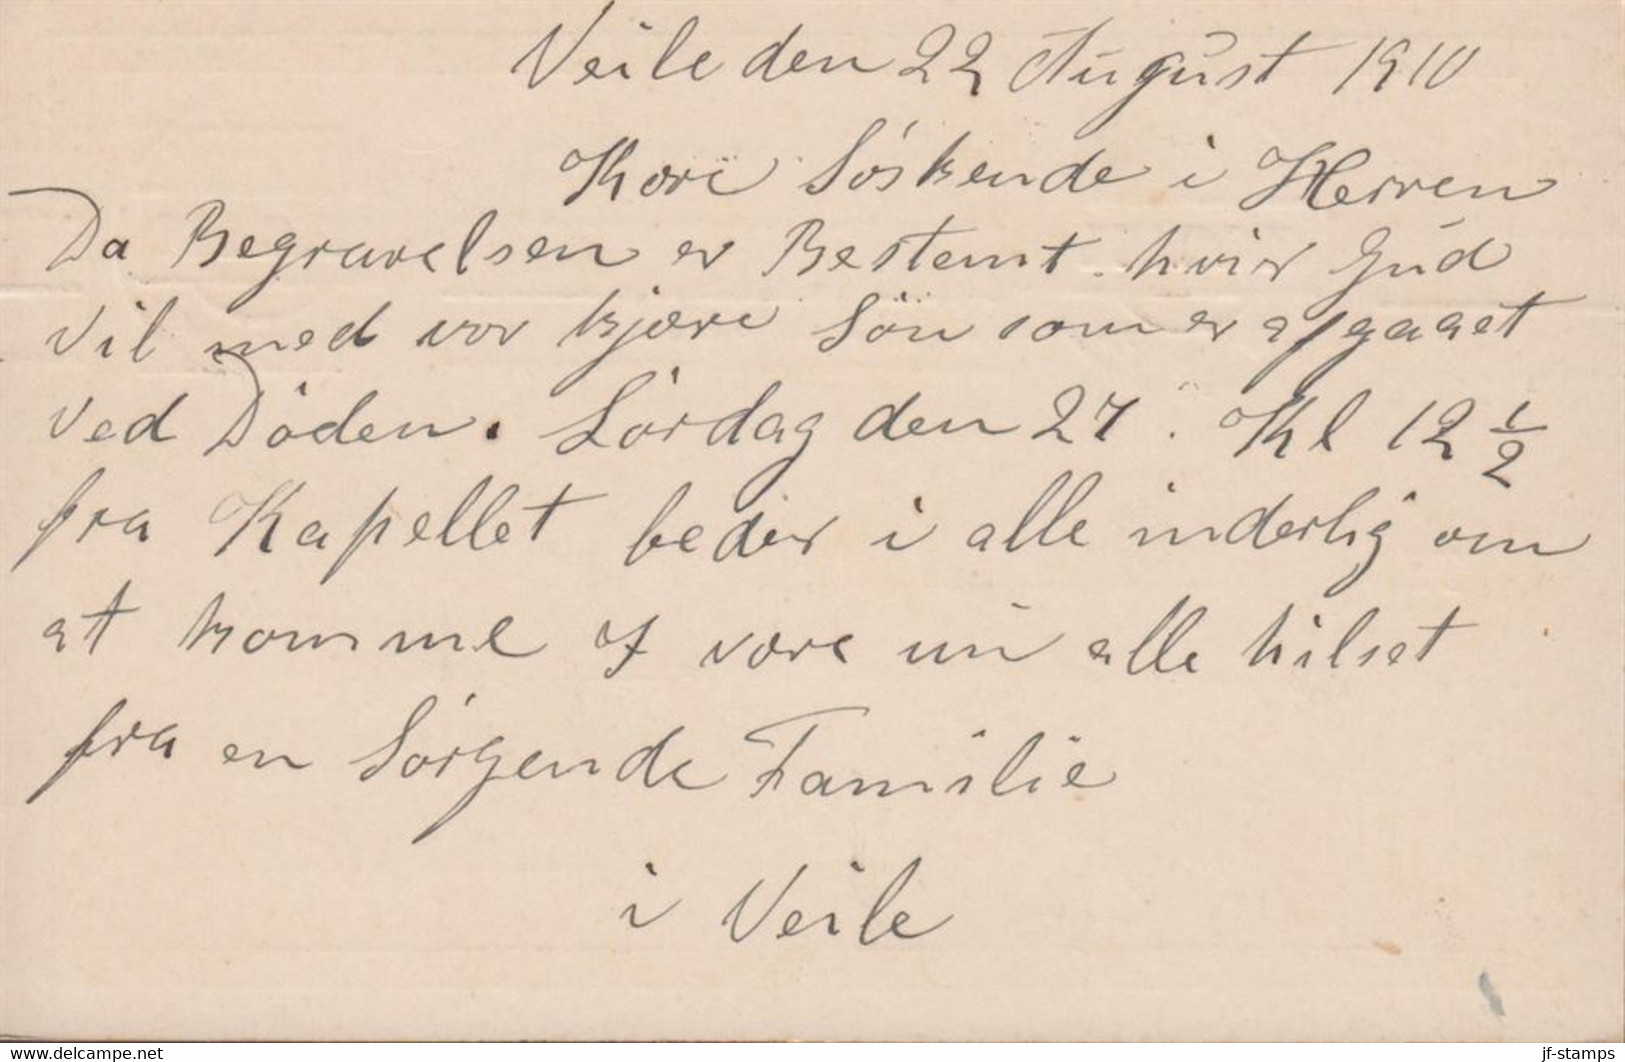 Veile den 22 August 1910
Kære Söskende i Herren
Da Begravelsen er Bestemt hvis Gud
Vil med vor kjære Sön som er afgaaet
ved Döden. Lördag den 27. Kl 12 1/2
fra Kapellet beder i alle inderlig om
at komme og være nu alle hilset
fra en Sörgende Familie
i Veile
www.delcampe.net jf-stamps